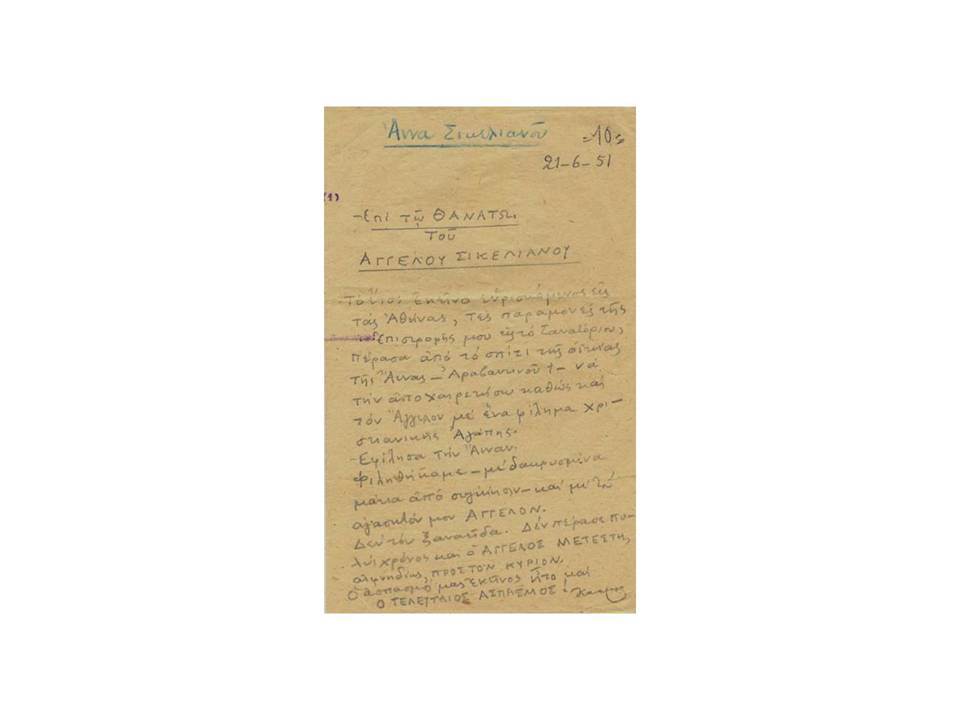 Ἄννα Σικελιανοῦ
=10=
21-6-51
(1)
-Ἐπὶ τῷ ΘΑΝΑΤΩ.
Τοῦ
ΑΓΓΕΛΟΥ ΣΙΚΕΛΙΑΝΟΥ
Ἐκεῖνο εὑρισκόμενος εἰς
τάς Ἀθήνας, τές παραμονές τῆς
Ἐπιστροφῆς μου εἰς τό Σανατόριον,
πέρασα ἀπό τό σπίτι τῆς
τῆς Ἄννας - Ἀραβαντινοῦ † - νά
τήν ἀποχαιρετίσω καθώς καί
τόν Ἄγγελον μέ ἕνα φίλημα χρι-
στιανικῆς Ἀγάπης.
-Ἐφίλησα τήν Ἄνναν.
Φιληθήκαμε - μέ δακρυσμένα
μάτια ἀπό συγκίνησιν - καί μέ τόν
ἀγαπητόν μου ΑΓΓΕΛΟΝ.
Δέν τόν ξαναεῖδα. Δέν πέρασε πο-
λύς χρόνος καί ὁ ΑΓΓΕΛΟΣ ΜΕΤΕΣΤΗ,
αἰφνηδίως, ΠΡΟΣ ΤΟΝ ΚΥΡΙΟΝ.
Ὁ ἀσπασμό μας ἐκεῖνος ἦτο καί
Ο ΤΕΛΕΥΤΑΙΟΣ ΑΣΠΑΣΜΟΣ!